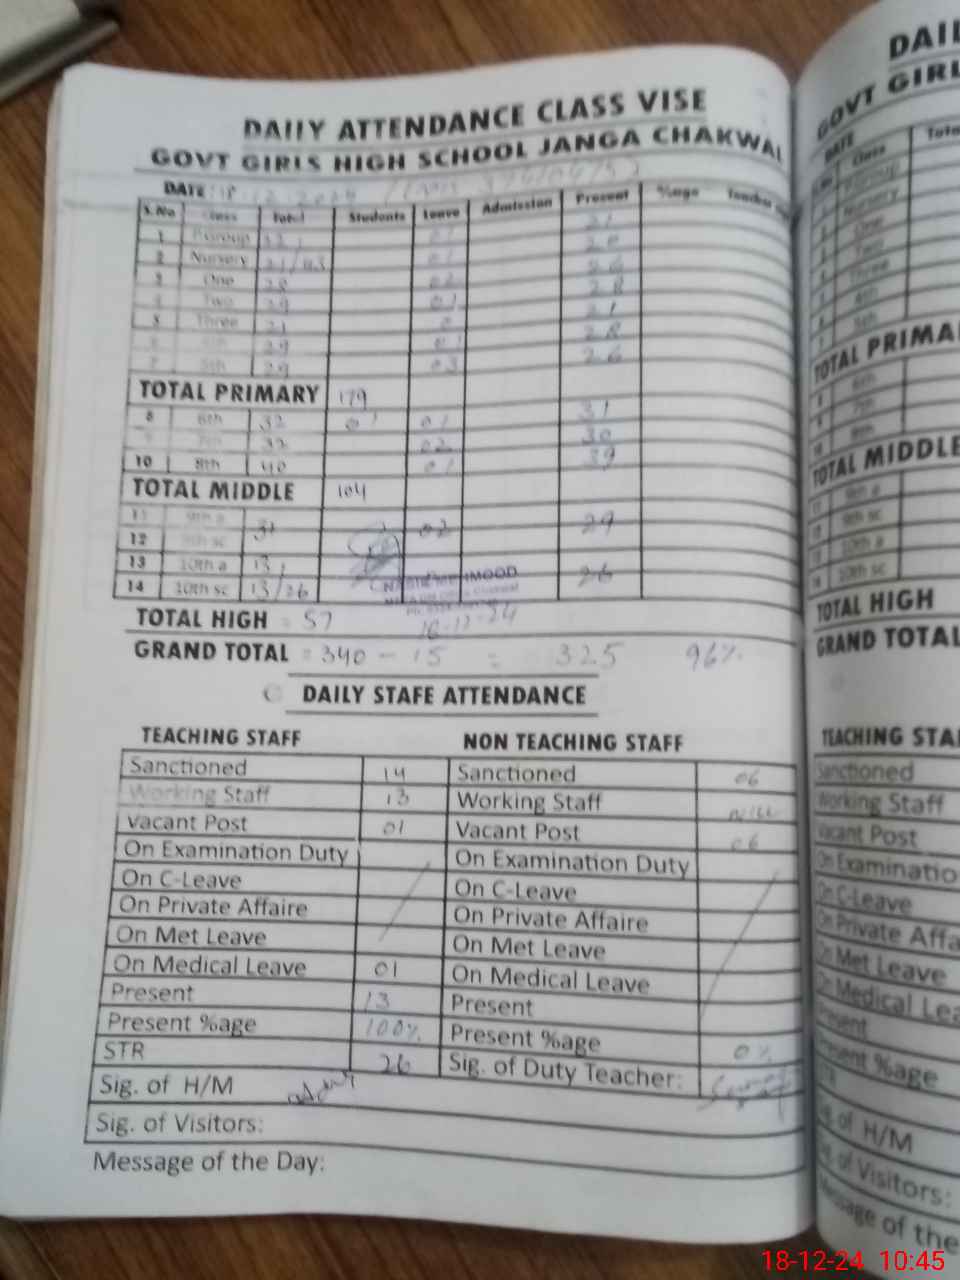 DAILY ATTENDANCE CLASS VISE
GOVT GIRLS HIGH SCHOOL JANGA CHAKWAL
DATE: 18-12-2024
S.No Class Total Students Leave Admission Present %age Teacher
1 P.Group 21
2 Nursery 21/43 01 20
3 One 28 02 26
4 Two 29 01 28
5 Three 21 0 21
6 29 01 28
7 5th 29 03 26
TOTAL PRIMARY 179
8 6th 32 01 01 31
9 7th 32 02 30
10 8th 40 01 39
TOTAL MIDDLE 104
11 9th a 31 02 29
12 9th sc
13 10th a 13
14 10th sc 13/26 26
MEHMOOD
TOTAL HIGH = 57
GRAND TOTAL = 340 - 15 = 325 96%
DAILY STAFE ATTENDANCE
TEACHING STAFF NON TEACHING STAFF
Sanctioned 14 Sanctioned 06
Working Staff 13 Working Staff Nill
Vacant Post 01 Vacant Post 06
On Examination Duty On Examination Duty
On C-Leave On C-Leave
On Private Affaire On Private Affaire
On Met Leave On Met Leave
On Medical Leave 01 On Medical Leave
Present 13 Present
Present %age 100% Present %age 0%
STR 26 Sig. of Duty Teacher:
Sig. of H/M
Sig. of Visitors:
Message of the Day:
DAIL
GOVT GIRL
DATE
Class Total
Nursery
One
Two
Three
4th
5th
TOTAL PRIMA
6th
7th
8th
TOTAL MIDDLE
9th a
9th sc
10th a
10th sc
TOTAL HIGH
GRAND TOTAL
TEACHING STA
Sanctioned
Working Staff
Vacant Post
On Examinatio
On C-Leave
On Private Affa
On Met Leave
On Medical Lea
Present
Present %age
STR
Sig. of H/M
Sig. of Visitors:
Message of the
18-12-24 10:45